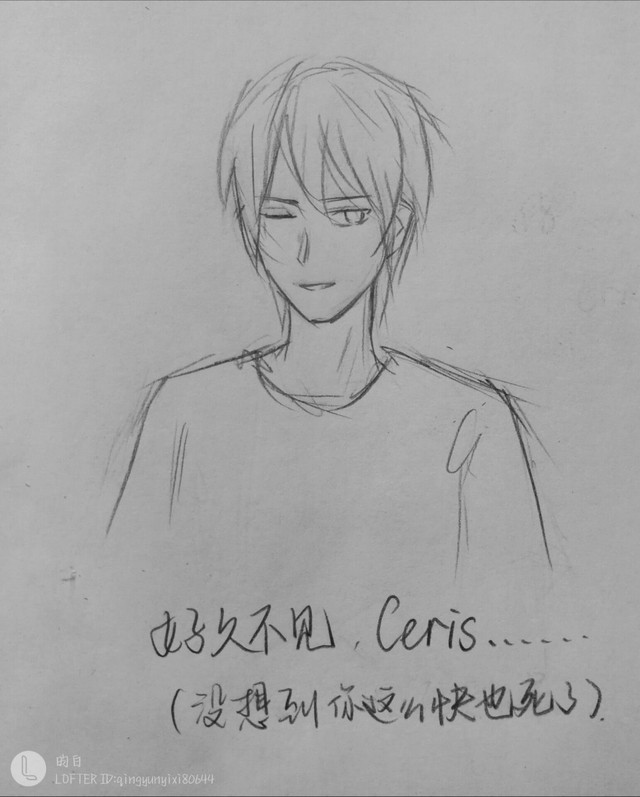 好久不见，Ceris......
(没想到你这么快也死了).
昀目
LOFTER ID:qingyunyixi80644